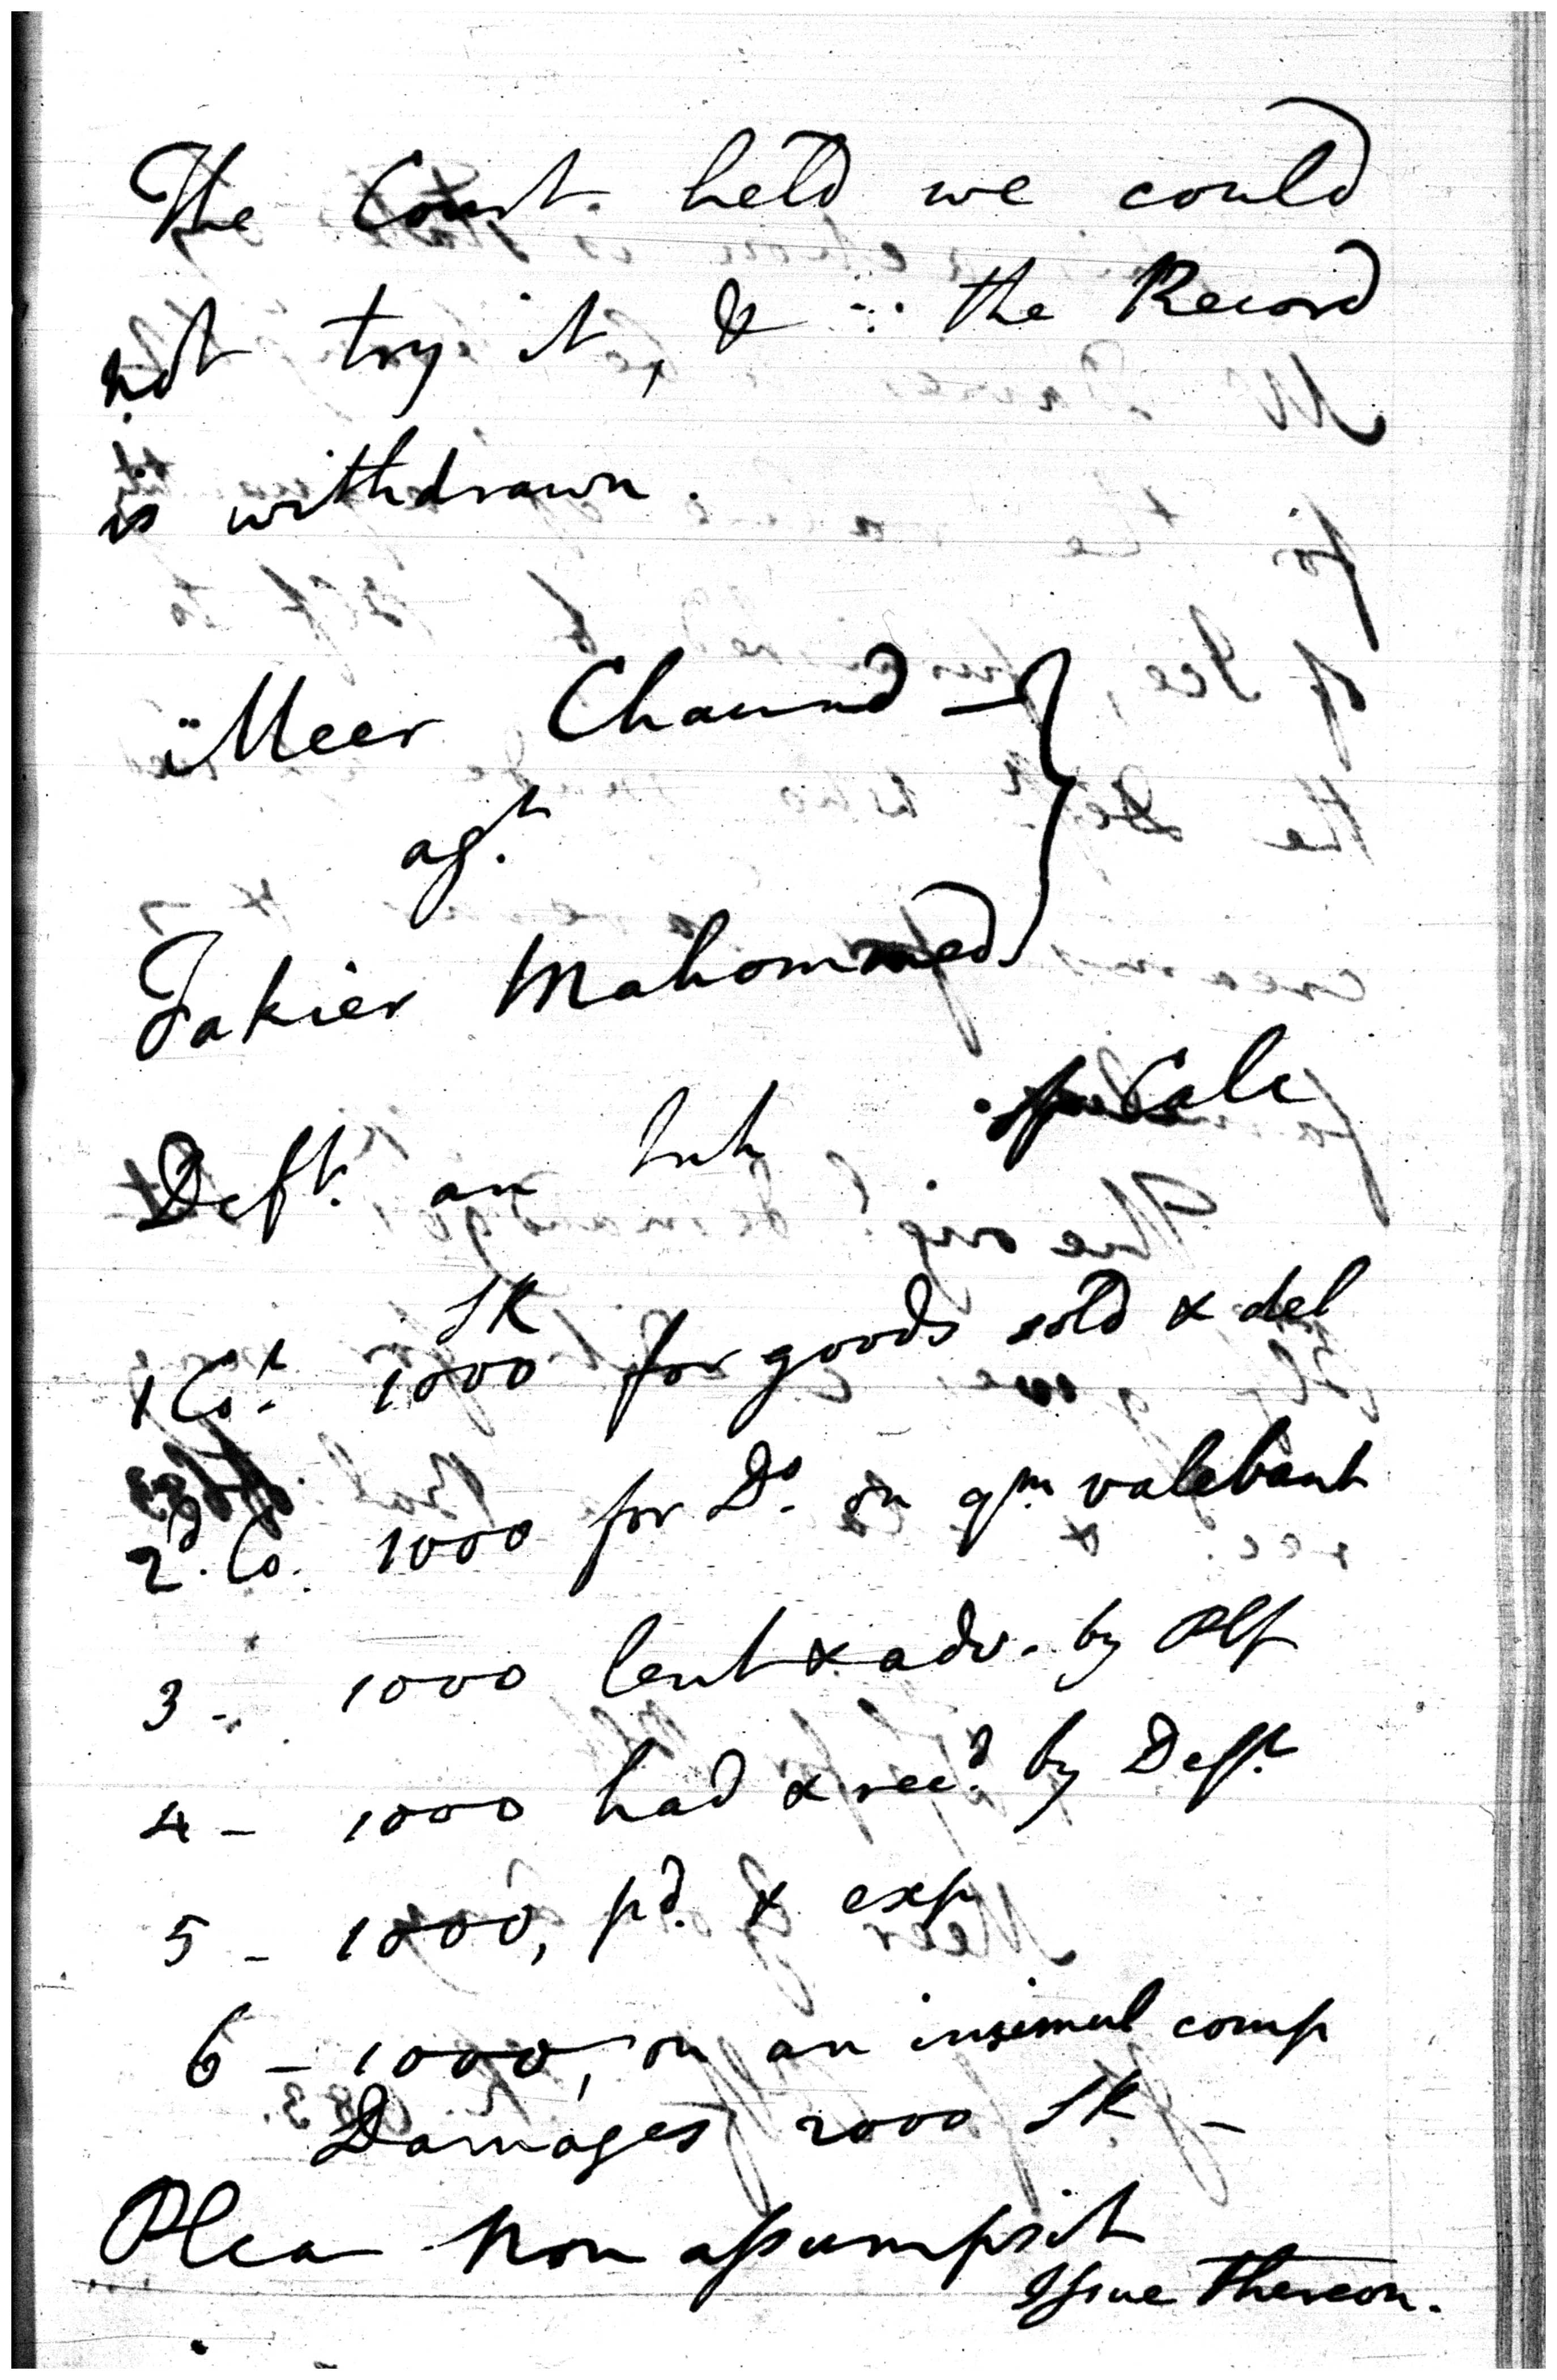 The Court held we could
not try it, & ∴ the Record
is withdrawn.
Meer Chaund
agt.
Fakier Mahommed
Deft. an Inh of Calc
1 Ct. 1000 SR for goods sold & del
2d. Co. 1000 for Do. on qm valebant
3 - 1000 lent & adv. by Plf
4 - 1000 had & recd. by Deft.
5 - 1000, pd. & exp
6 - 1000, on an insimul comp
Damages 2000 SR -
Plea Non assumpsit
Issue thereon.